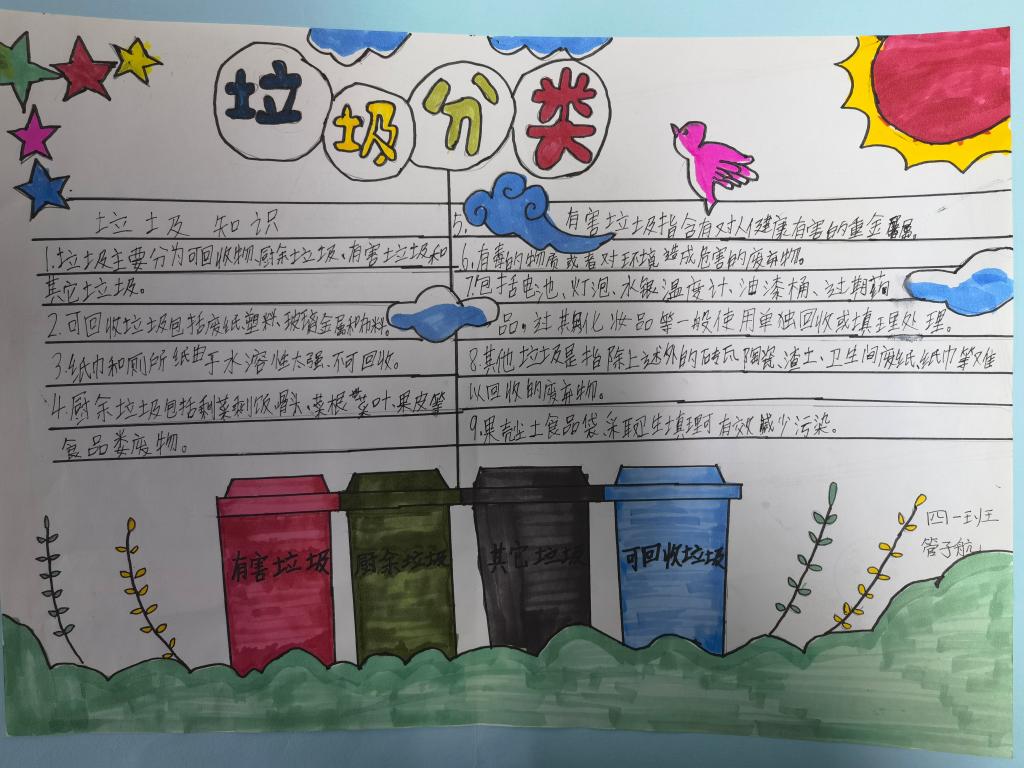 垃圾分类
垃圾知识
1.垃圾主要分为可回收物、厨余垃圾、有害垃圾和
其它垃圾。
2.可回收垃圾包括废纸塑料、玻璃金属和布料。
3.纸巾和厕所纸由于水溶性太强、不可回收。
4.厨余垃圾包括剩菜剩饭、骨头、菜根菜叶、果皮等
食品类废物。
5.有害垃圾指含有对人健康有害的重金属。
6.有毒的物质或者对环境造成危害的废弃物。
7.包括电池、灯泡、水银温度计、油漆桶、过期药
品、过期化妆品等一般使用单独回收或填埋处理。
8.其他垃圾是指除上述外的砖瓦陶瓷、渣土、卫生间废纸、纸巾等难
以回收的废弃物。
9.果壳尘土食品袋采取卫生填埋可有效减少污染。
有害垃圾
厨余垃圾
其它垃圾
可回收垃圾
四一班
管子航